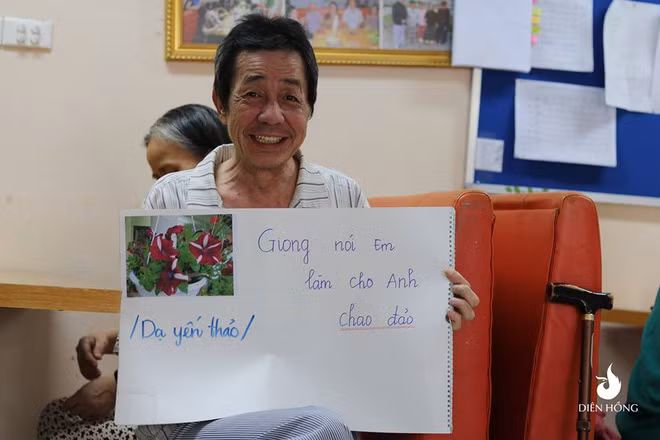 Giọng nói Em
làm cho Anh
chao đảo
/Dạ yến thảo/
DIÊN HỒNG